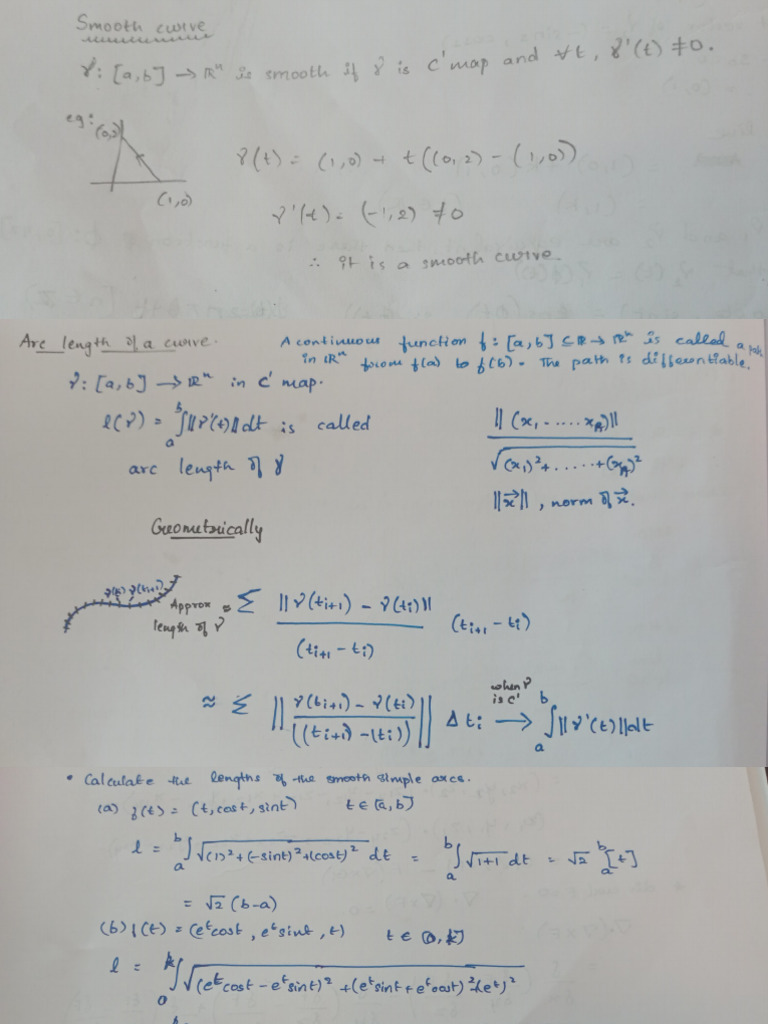 Smooth curve
γ: [a,b] → ℝⁿ is smooth if γ is C' map and ∀t, γ'(t) ≠ 0.
eg:
(0,2)
(1,0)
γ(t) = (1,0) + t((0,2) - (1,0))
γ'(t) = (-1,2) ≠ 0
∴ it is a smooth curve.
Arc length of a curve.
A continuous function f: [a,b] ⊆ ℝ → ℝⁿ is called a path
in ℝⁿ from f(a) to f(b). The path is differentiable.
γ: [a,b] → ℝⁿ in C' map.
l(γ) = ∫ₐᵇ ||γ'(t)|| dt is called
arc length of γ
||(x₁ ..... xₙ)||
√(x₁)² + ..... + (xₙ)²
||x⃗||, norm of x⃗.
Geometrically
γ(ti) γ(ti+1)
Approx length of γ = Σ ||γ(ti+1) - γ(ti)|| / (ti+1 - ti) (ti+1 - ti)
≈ Σ || γ(ti+1) - γ(ti) / ((ti+1) - (ti)) || Δti → when γ is C' ∫ₐᵇ ||γ'(t)|| dt
• Calculate the lengths of the smooth simple arcs.
(a) f(t) = (t, cost, sint) t ∈ [a,b]
l = ∫ₐᵇ √(1)² + (-sint)² + (cost)² dt = ∫ₐᵇ √1+1 dt = √2 ₐᵇ[t]
= √2 (b-a)
(b) f(t) = (eᵗcost, eᵗsint, t) t ∈ [0, k]
l = ∫₀ᵏ √(eᵗcost - eᵗsint)² + (eᵗsint + eᵗcost)² + (eᵗ)²